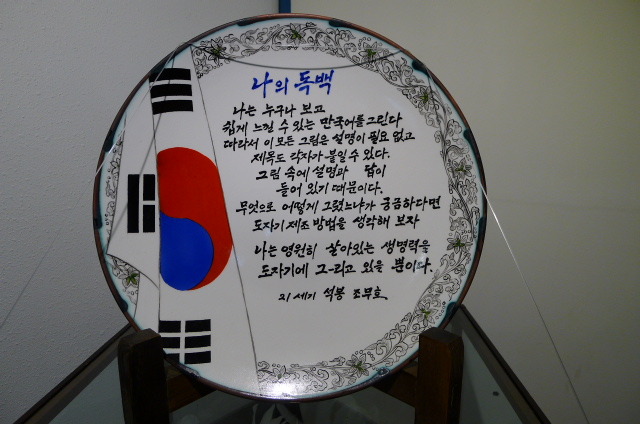 나의 독백
나는 누구나 보고
쉽게 느낄 수 있는 만국어를 그린다
따라서 이 모든 그림은 설명이 필요 없고
제목도 각자가 붙일 수 있다.
그림 속에 설명과 답이
들어 있기 때문이다.
무엇으로 어떻게 그렸느냐가 궁금하다면
도자기 제조 방법을 생각해 보자
나는 영원히 살아있는 생명력을
도자기에 그리고 있을 뿐이다.
21세기 석봉 조무호